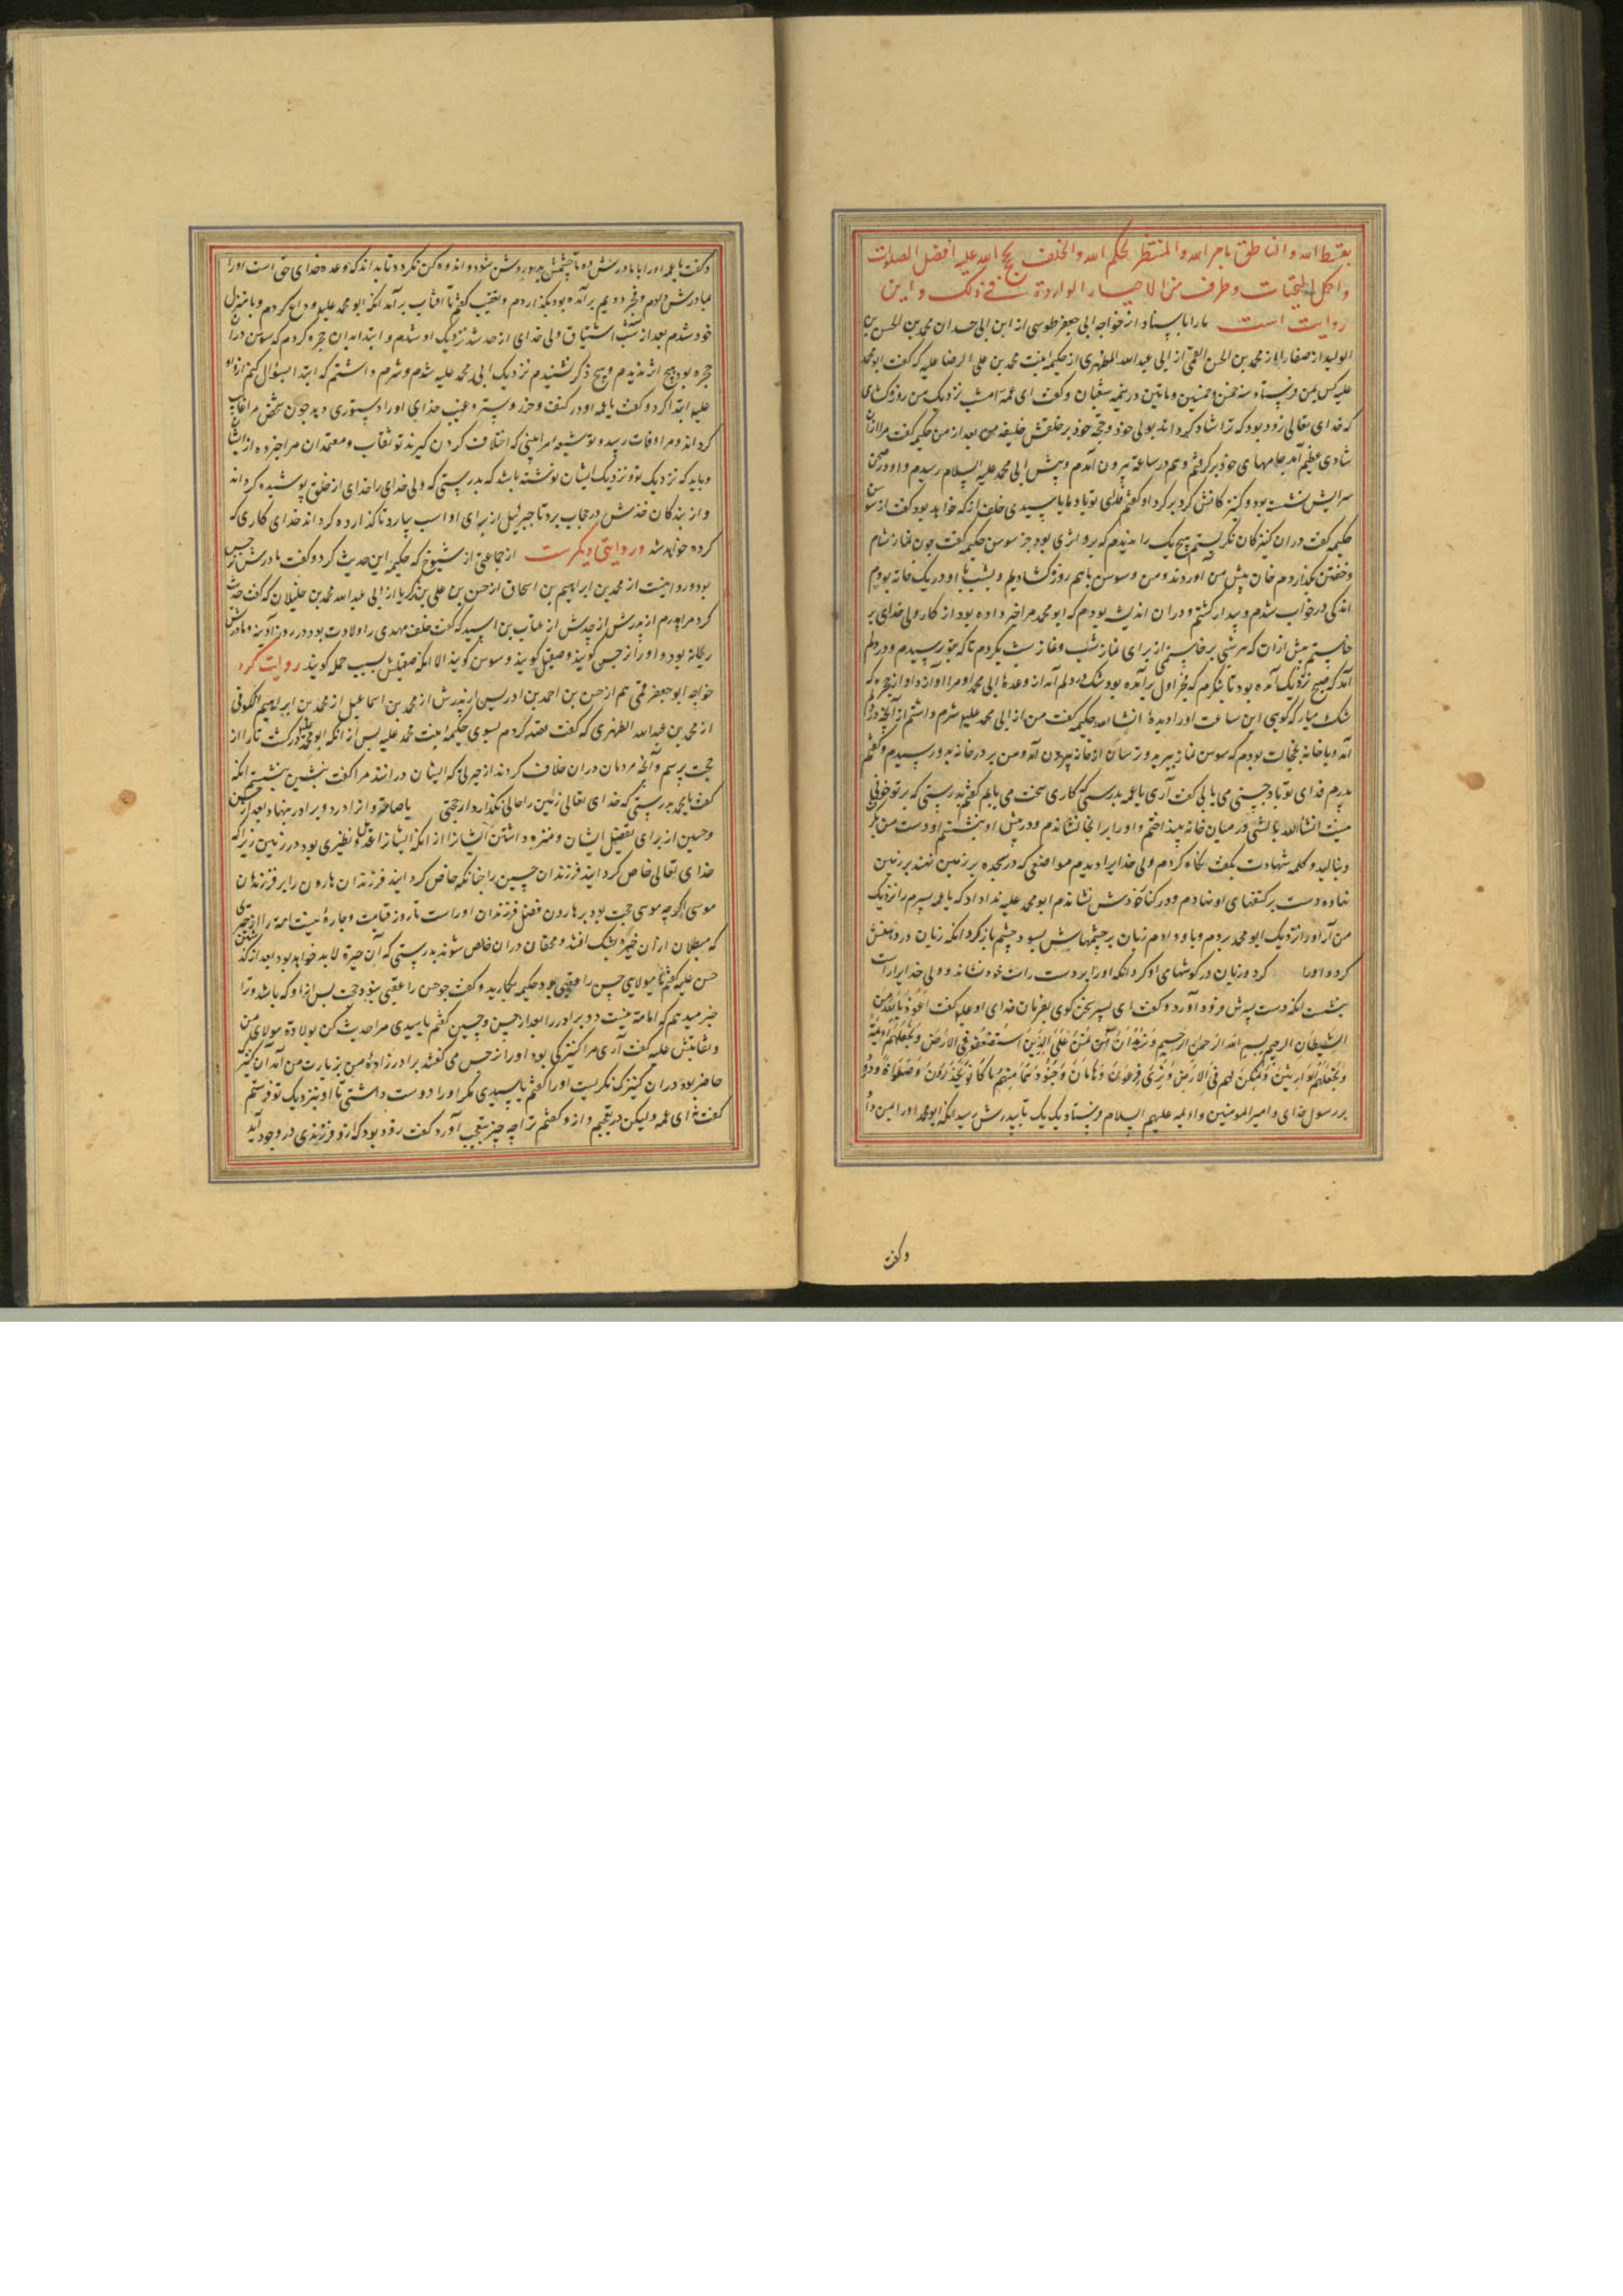 بقسط الله والناطق بامر الله والمنتظر لحکم الله والخلف بحج الله علیه افضل الصلوات
واکمل التحیات وطرف من الاخبار الواردة فی ذلک واین
روایت است ما را باسناد از خواجه ابی جعفر طوسی از ابن ابی حمدان محمد بن الحسن بن
الولید از صفار از محمد بن الحسن القمی از ابی عبد الله المطهری از حکیمه بنت محمد بن علی الرضا علیه که گفت ابو محمد
علیه کس بمن فرستاد سنه خمس وخمسین وماتین در نیمه شعبان وگفت ای عمه امشب نزدیک من روزه گشای
که خدای تعالی زود بود که ترا شاد گرداند بولی خود وحجة خود بر خلقش خلیفه من بعد از من حکیمه گفت مرا از آن
شادی عظیم آمد جامهای خود بر گرفتم وهم در ساعت بیرون آمدم وپیش ابی محمد علیه السلام رسیدم واو در صحن
سرایش نشسته بود وکنیزکانش گرد بر گرد او گفتم فدای تو باد ما یا سیدی خلف از که خواهد بود گفت از سوسن
حکیمه گفت در آن کنیزکان نگریستم هیچ یک را ندیدم که برو اثری بود جز سوسن حکیمه گفت چون نماز شام
وخفتن بگذاردم خوان پیش من آوردند ومن وسوسن باهم روزه گشادیم وبشب با او در یک خانه بودم
اندکی در خواب شدم وبیدار گشتم ودر آن اندیشه بودم که ابو محمد مرا خبر داده بود از کار ولی خدای بر
خاستم پیش از آن که هر شبی بر خاستمی از برای نماز شب ونماز شب بکردم تا که بوتر رسیدم ودر دلم
آمد که صبح نزدیک آمده بود تا بنگرم که فجر اول بر آمده بود شک در دلم آمد از وعدهٔ ابی محمد او مرا آواز داد از حجره که
شک میار که گویی این ساعت او را دیدهٔ انشاالله حکیمه گفت من از ابی محمد علیه شرم داشتم از آنچه در دلم
آمد وبا خانه بخجالت بودم که سوسن نماز ببرید وترسان از خانه بیرون آمد ومن بر در خانه بدو رسیدم وگفتم
پدرم فدای تو باد چیزی می یابی گفت آری یا عمه بدرستی که کاری سخت می یابم گفتم بدرستی که بر تو خوفی
نیست انشاالله بالشی در میان خانه بینداختم واو را بر آنجا نشاندم ودر پیش او بنشستم او دست من بگرفت
وبنالید وکلمه شهادت بگفت نگاه کردم ولی خدایرا دیدم مواضعی که در سجده بر زمین نهند بر زمین
نهاده دست بر کتفهای او نهادم ودر کنار خودش نشاندم ابو محمد علیه ندا داد که یا عمه پسرم را نزدیک
من آر او را نزدیک ابو محمد بردم وباو دادم زبان بر چشمهاش بسود چشم باز کرد آنگه زبان در دهنش
کرد واو را کرد وزبان در گوشهای او کرد آنگه او را بر دست راست خود نشاند وولی خدا برراست
بنشست آنگه دست پدرش فرود آورد وگفت ای پسر سخن گوی بفرمان خدای او علیه گفت اعوذ بالله من
الشیطان الرجیم بسم الله الرحمن الرحیم ونرید ان نمن علی الذین استضعفوا فی الارض ونجعلهم ائمة
ونجعلهم الوارثین ونمکن لهم فی الارض ونری فرعون وهامان وجنودهما منهم ما کانوا یحذرون وصلوات و درود
بر رسول خدای وامیر المومنین وایمه علیهم السلام فرستاد یک یک تا بپدرش رسید آنگه ابو محمد او را بمن داد
وگفت
وگفت یا عمه او را با مادرش ده تا چشمش بدو روشن شود واندوهگن نگردد تا بداند که وعده خدای حق است او را
بمادرش دادم وفجر دویم بر آمده بود بگذاردم وتعقیب گفتم تا آفتاب بر آمد آنگه ابو محمد علیه وداع کردم وبا منزل
خود شدم بعد از سه شب اشتیاق ولی خدای از حد شد نزدیک او شدم وابتدا بدان حجره کردم که سوسن در آن
حجره بود هیچ اثر ندیدم وهیچ ذکر نشنیدم نزدیک ابی محمد علیه شدم وشرم داشتم که ابتدا بسؤال کنم از او او
علیه ابتدا کرد وگفت یا عمه او در کنف وحرز وستر وغیب خدای او را دستوری دهد چون شخص مرا غایب
گرداند ومرا وفات رسد وتو شیعه مرا بینی که اختلاف کردن گیرند تو ثقات ومعتمدان مرا خبر ده از ایشان
وباید که نزدیک تو ونزدیک ایشان نوشته باشد که بدرستی که ولی خدای را خدای از خلق پوشیده گرداند
واز بندگان خودش در حجاب برد تا جبرئیل از برای او اسب بیارد تا گذارده گرداند خدای کاری که
کرده خواهد شد وروایتی دیگرست از جماعتی از شیوخ که حکیمه این حدیث کرد وگفت مادرش نرجس
بود وروایتست از محمد بن ابراهیم بن اسحاق از حسن بن علی بن زکریا از ابی عبد الله محمد بن خلیلان که گفت حدیث
کرد مرا پدرم از پدرش از جدش از عتاب بن اسید که گفت خلف مهدی را ولادت بود در روز آدینه ومادرش
ریحانه بود واو را نرجس گویند وصیقل گویند وسوسن گویند الا آنکه صیقلش بسبب حمله گویند روایت کرد
خواجه ابو جعفر قمی هم از حسن بن احمد بن ادریس از پدرش از محمد بن اسماعیل از محمد بن ابراهیم الکوفی
از محمد بن عبد الله الطهری که گفت قصد کردم بسوی حکیمه بنت محمد علیه پس از آنکه ابو محمد علیه در گذشت تا او را از
حجت پرسم وآنچه مردمان در آن خلاف کردند از حیرتی که ایشان در آنند مرا گفت بنشین بنشستم آنگه
گفت یا محمد بدرستی که خدای تعالی زمین را خالی نگذارد از حجتی یا صامت واز ادر دو برادر ننهاد بعد از حسن
وحسین از برای تفضیل ایشان ومنزه داشتن ایشانرا از آنکه ایشانرا عدیل ونظیری بود در زمین زیرا که
خدای تعالی خاص گردانید فرزندان حسین را چنانکه خاص گردانید فرزندان هارون را بر فرزندان
موسی اگر چه موسی حجت بود بر هارون وفضل فرزندان او راست تا روز قیامت وچاره نیست امة را از حیرتی
که مبطلان از آن خیره بشک افتند ومحقان در آن خاص شوند بدرستی که آن حیرة لابد خواهد بود بعد از گذشتن
حسن علیه گفتم یا مولای حسن را عقبی بود حکیمه بخندید وگفت چو حسن را عقبی نبود حجت پس از او که باشد وترا
خبر میدهم که امامة نیست دو برادر را بعد از حسن وحسین گفتم یا سیدی مرا حدیث کن بولادة مولای من
وغایبتش علیه گفت آری مرا کنیزکی بود او را نرجس می گفتند برادر زادهٔ من بزیارت من آمد آن کنیزک
حاضر بود در آن کنیزک نگریست او را گفتم یا سیدی مگر او را دوست داشتی تا او نزدیک تو فرستم
گفت نه ای عمه ولیکن در تعجبم از او گفتم ترا چه چیز بتعجب آورد گفت زود بود که از او فرزندی در وجود آید